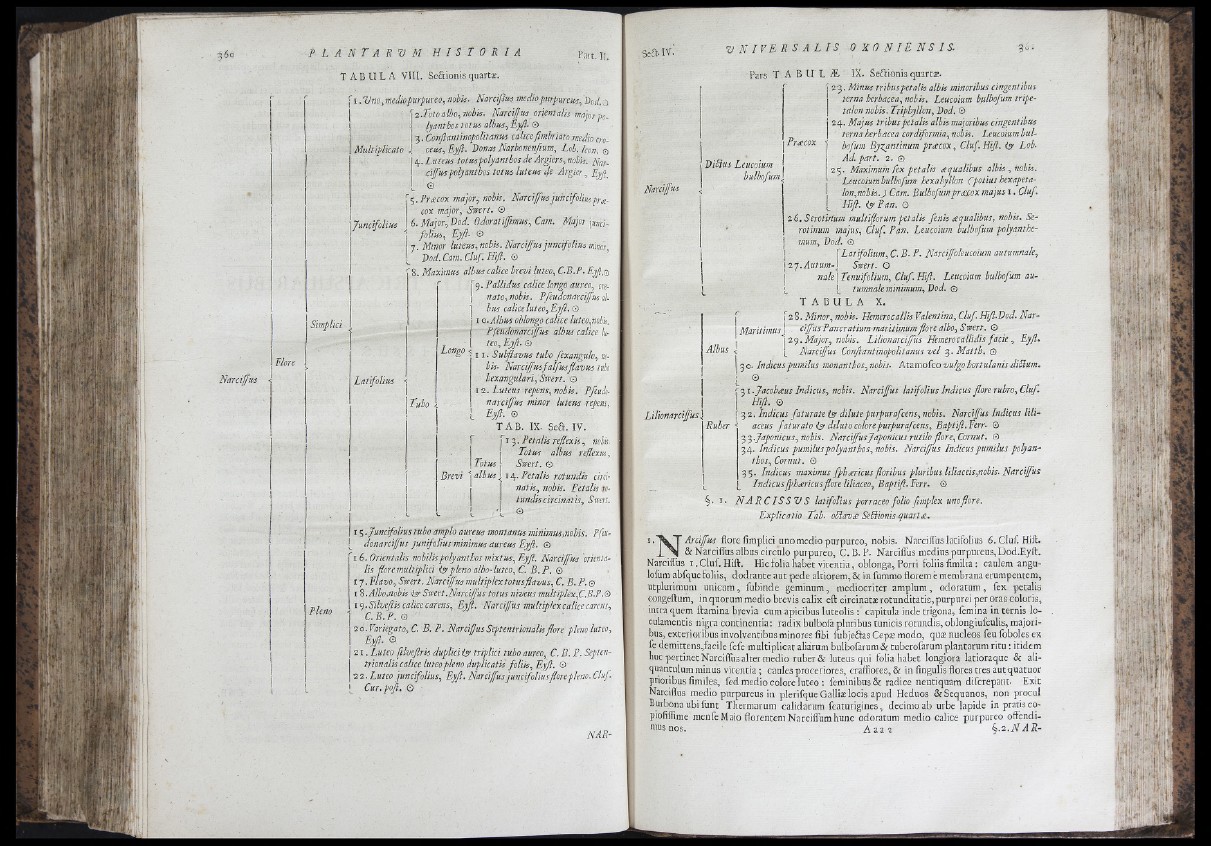 360 PLANTARUM HISTORIA Part. II.
TABULA VIII. Sectionis quartæ.
Narcissus
Flore
Simplici
Multiplicato
1. Uno, medio purpureo, nobis. Narcissus medio purpureus, Dod. ☉
2. Toto albo, nobis. Narcissus orientalis major po-
lyanthos totus albus, Eyst. ☉
3. Constantinopolitanus calice fimbriato medio cro-
ceus, Eyst. Donas Narbonensium, Lob. Icon. ☉
4. Luteus totus polyanthos de Argiers, nobis. Nar-
cissus polyanthos totus luteus de Argier, Eyst.
☉
Juncifolius
5. Præcox major, nobis. Narcissus juncifolius præ-
cox major, Swert. ☉
6. Major, Dod. Odoratissimus, Cam. Major junci-
folius, Eyst. ☉
7. Minor luteus, nobis. Narcissus juncifolius minor,
Dod. Cam. Cluf. Hist. ☉
Latifolius
8. Maximus albus calice brevi luteo, C.B.P. Eyst. ☉
Tubo
Longo
9. Pallidus calice longo aureo, cre-
nato, nobis. Pseudonarcissus al-
bus calice luteo, Eyst. ☉
10. Albus oblongo calice luteo, nobis.
Pseudonarcissus albus calice lu-
teo, Eyst. ☉
11. Subflavus tubo sexangulo, no-
bis. Narcissus falsus flavus tubo
hexangulari, Swert. ☉
12. Luteus repens, nobis. Pseudo-
narcissus minor luteus repens,
Eyst. ☉
TAB. IX. Sect. IV.
Brevi
Totus albus
13. Petalis reflexis, nobis.
Totus albus reflexus,
Swert. ☉
14. Petalis rotundis circi-
natis, nobis. Petalis ro-
tundis circinatis, Swert.
☉
15. Juncifolius tubo amplo aureus montanus minimus, nobis. Pseu-
donarcissus junifolius minimus aureus Eyst. ☉
Pleno
16. Orientalis nobilis polyanthos mixtus, Eyst. Narcissus orienta-
lis flore multiplici & pleno albo-luteo, C. B. P. ☉
17. Flavo, Swert. Narcissus multiplex totus flavus, C. B. P. ☉
18. Albo nobis & Swert. Narcissus totus niveus multiplex, C.B.P. ☉
19. Silvestis calice carens, Eyst. Narcissus multiplex calice carens,
C. B. P. ☉
20. Variegato, C. B. P. Narcissus Septentrionalis flore pleno luteo,
Eyst. ☉
21. Luteo silvestris duplici & triplici tubo aureo, C. B. P. Septen-
trionalis calice luteo pleno duplicatis foliis, Eyst. ☉
22. Luteo juncifolius, Eyst. Narcissus juncifolius flore pleno. Cluf.
Cur. post. ☉
NAR-
Sect. IV. UNIVERSALIS OXONIENSIS. 36
Pars TABULÆ IX. Sectionis quartæ.
Narcissus
Dictus Leucoium
bulbosum
Præcox
23. Minus tribus petalis albis minoribus cingentibus
terna herbacea, nobis. Leucoium bulbosum tripe-
talon nobis. Triphyllon, Dod. ☉
24. Majus tribus petalis albis majoribus cingentibus
terna herbacea cordiformia, nobis. Leucoium bul-
bosum Byzantinum præcox, Cluf. Hist. & Lob.
Ad. part. 2. ☉
25. Maximum sex petalis æqualibus albis, nobis.
Leucoium bulbosum hexabyllon (potius hexapeta-
lon, nobis.) Cam. Bulbosum præcox majus 1. Cluf.
Hist. & Pan. ☉
26. Serotinum multiflorum petalis senis æqualibus, nobis. Se-
rotinum majus, Cluf. Pan. Leucoium bulbosum polyanthe-
mum, Dod. ☉
27. Autum-
nale
Latifolium, C. B. P. Narcissoleucoium autumnale,
Swert. ☉
Tenuifolium, Cluf. Hist. Leucoium bulbosum au-
tumnale minimum, Dod. ☉
TABULA X.
Lilionarcissus
Albus
Maritimus
28. Minor, nobis. Hemerocallis Valentina, Cluf. Hist. Dod. Nar-
cissus Pancratium maritimum flore albo, Swert. ☉
29. Major, nobis. Lilionarcissus Hemerocallidis facie, Eyst.
Narcissus Constantinopolitanus vel 3. Matth. ☉
30. Indicus pumilus monanthos, nobis. Atamosco vulgo hortulanis dictum.
☉
Ruber
31. Jacobæus Indicus, nobis. Narcissus latifolius Indicus flore rubro, Cluf.
Hist. ☉
32. Indicus saturate & dilute purpurascens, nobis. Narcissus Indicus lili-
aceus saturato & diluto colore purpurascens, Baptist. Ferr. ☉
33. Japonicus, nobis. Narcissus Japonicus rutilo flore, Cornut. ☉
34. Indicus pumilus polyanthos, nobis. Narcissus Indicus pumilus polyan-
thos, Cornut. ☉
35. Indicus maximus sphæricus floribus pluribus liliaceis, nobis. Narcissus
Indicus sphæricus flore liliaceo, Baptist. Ferr. ☉
§. 1. NARCISSUS latifolius porraceo folio simplex uno flore.
Explicatio Tab. octavæ Sectionis quartæ.
1. NArcissus flore simplici uno medio purpureo, nobis. Narcissus locifolius 6. Cluf. Hist.
& Narcissus albus circulo purpureo, C. B. P. Narcissus medius purpureus, Dod. Eyst.
Narcissus 1. Cluf. Hist. Hic folia habet virentia, oblonga, Porri foliis similia: caulem angu-
losum absque foliis, dodrante aut pede altiorem, & in summo florem e membrana erumpentem,
utplurimum unicum, subinde geminum, mediocriter amplum, odoratum, sex petalis
congestum, in quorum medio brevis calix est circinatæ rotunditatis, purpurei per oras coloris,
intra quem stamina brevia cum apicibus luteolis: capitula inde trigona, semina in ternis lo-
culamentis nigra continentia: radix bulbosa pluribus tunicis rotundis, oblongiusculis, majori-
bus, exterioribus involventibus minores sibi subjectas Cepæ modo, quæ nucleos seu soboles ex
se demittens, facile sese multiplicat aliarum bulbosarum & tuberosarum plantarum ritu: itidem
huc pertinet Narcissus alter medio ruber & luteus qui folia habet longiora latioraque & ali-
quantulum minus virentia; caules proceriores, crassiores, & in singulis flores tres aut quatuor
prioribus similes, sed medio colore luteo: seminibus & radice neutiquam discrepant. Exit
Narcissus medio purpureus in plerisque Galliæ locis apud Heduos & Sequanos, non procul
Burbona ubi sunt Thermarum calidarum scaturigines, decimo ab urbe lapide in pratis co-
piosissime mense Maio florentem Narcissum hunc odoratum medio calice purpureo offendi-
mus nos. Aaa 2 §. 2. NAR-